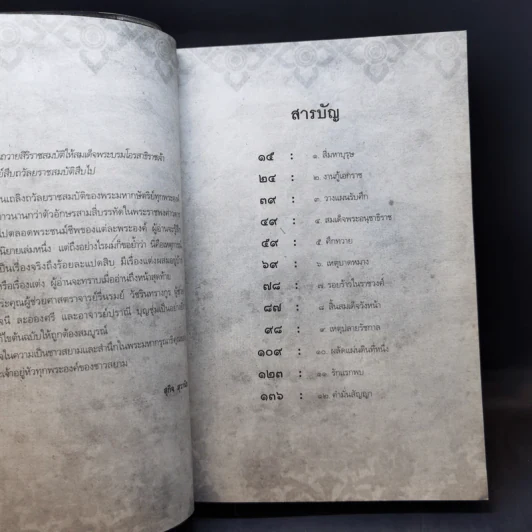 ถวายสิริราชสมบัติให้สมเด็จพระบรมโอรสาธิราชเจ้า
สืบถวัลยราชสมบัติสืบไป
นเถลิงถวัลยราชสมบัติของพระมหากษัตริย์ทุกพระองค์
าวนานกว่าตัวอักษรสามสี่บรรทัดในพระราชพงศาวดาร
ไปตลอดพระชนม์ชีพของแต่ละพระองค์ ผู้อ่านจะรู้สึก
นิยายเล่มหนึ่ง แต่ถึงอย่างไรผมก็ขอย้ำว่า นี่คือเหตุการณ์
เป็นเรื่องจริงถึงร้อยละแปดสิบ มีเรื่องแต่งผสมอยู่
หรือเรื่องแต่ง ผู้อ่านจะทราบเมื่ออ่านถึงหน้าสุดท้าย
ระคุณผู้ช่วยศาสตราจารย์รื่นรมย์
จนี ละอองศรี และอาจารย์ปุราณี บุญชุ่มเป็นอย่าง
ไขต้นฉบับให้ถูกต้องสมบูรณ์
จในความเป็นชาวสยามและสำนึกในพระมหากรุณาธิคุณ
ะเจ้าอยู่หัวทุกพระองค์ของชาวสยาม
สารบัญ
๑๕ : ๑. สี่มหาบุรุษ
๒๔ : ๒. งานกู้เอกราช
๓๙ : ๓. วางแผนรับศึก
๔๙ : ๔. สมเด็จพระอนุชาธิราช
๕๙ : ๕. ศึกทวาย
๖๙ : ๖. เหตุบาดหมาง
๗๘ : ๗. รอยร้าวในราชวงศ์
๘๗ : ๘. สิ้นสมเด็จวังหน้า
๙๘ : ๙. เหตุปลายรัชกาล
๑๐๙ : ๑๐. ผลัดแผ่นดินที่หนึ่ง
๑๒๓ : ๑๑. รักแรกพบ
๑๓๖ : ๑๒. คำมั่นสัญญา